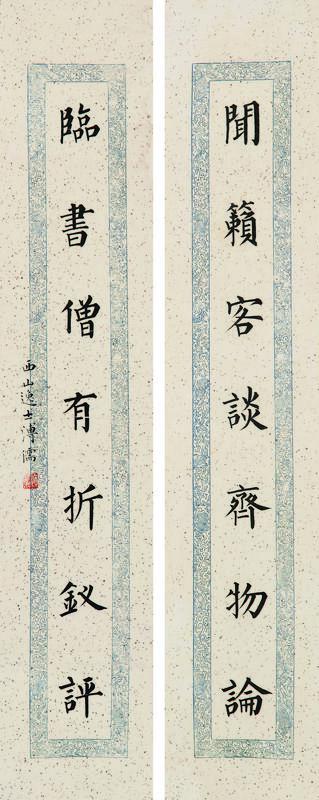 聞籟客談齊物論
臨書僧有折釵評
西山逸士溥儒